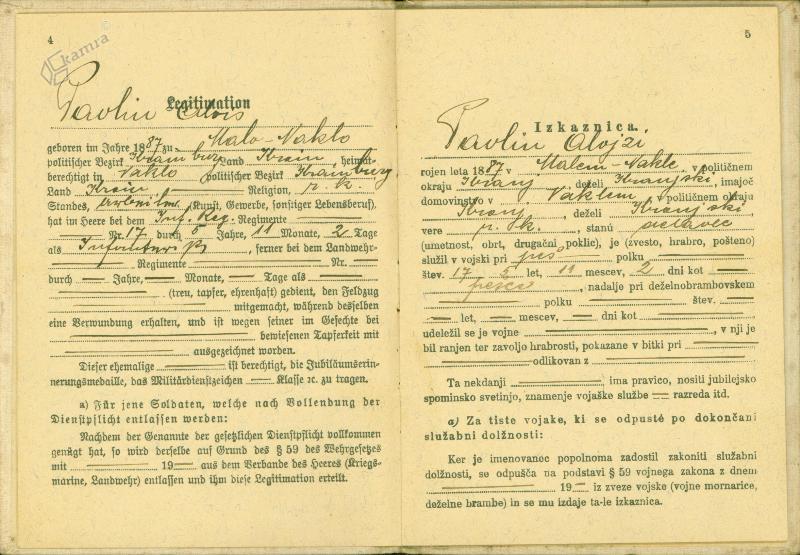 4
kamra
Pavlin Alois
Legitimation
geboren im Jahre 1887 zu Malo-Naklo
politischer Bezirk Krainburg Land Krain, heimat-
berechtigt in Naklo politischer Bezirk Krainburg
Land Krain, Religion, r. k.
Standes, (Kunst, Gewerbe, sonstiger Lebensberuf),
hat im Heere bei dem Inf. Reg. Regimente
Nr. 17 durch 5 Jahre, 11 Monate, 2 Tage
als Infanterist, ferner bei dem Landwehr-
Regimente Nr.
durch Jahre, Monate, Tage als
(treu, tapfer, ehrenhaft) gedient, den Feldzug
mitgemacht, während desselben
eine Verwundung erhalten, und ist wegen seiner im Gefechte bei
bewiesenen Tapferkeit mit
ausgezeichnet worden.
Dieser ehemalige ist berechtigt, die Jubiläumserin-
nerungsmedaille, das Militärdienstzeichen Klasse ꝛc. zu tragen.
a) Für jene Soldaten, welche nach Vollendung der
Dienstpflicht entlassen werden:
Nachdem der Genannte der gesetzlichen Dienstpflicht vollkommen
genügt hat, so wird derselbe auf Grund des § 59 des Wehrgesetzes
mit 19 aus dem Verbande des Heeres (Kriegs-
marine, Landwehr) entlassen und ihm diese Legitimation erteilt.
5
Izkaznica.
Pavlin Alojzi
rojen leta 1887 v Malem-Nakle, v političnem
okraju Kranj, deželi Kranjski, imajoč
domovinstvo v Naklem v političnem okraju
Kranj, deželi Kranjski,
vere r. k., stanu delavec
(umetnost, obrt, drugačni poklic), je (zvesto, hrabro, pošteno)
služil v vojski pri peš polku
štev. 17 5 let, 11 mescev, 2 dni kot
pešec, nadalje pri deželnobrambovskem
polku štev.
let, mescev, dni kot
udeležil se je vojne, v nji je
bil ranjen ter zavoljo hrabrosti, pokazane v bitki pri
odlikovan z
Ta nekdanji ima pravico, nositi jubilejsko
spominsko svetinjo, znamenje vojaške službe razreda itd.
a) Za tiste vojake, ki se odpusté po dokončani
službeni dolžnosti:
Ker je imenovanec popolnoma zadostil zakoniti službeni
dolžnosti, se odpušča na podstavi § 59 vojnega zakona z dnem
19 iz zveze vojske (vojne mornarice,
deželne brambe) in se mu izdaje ta-le izkaznica.